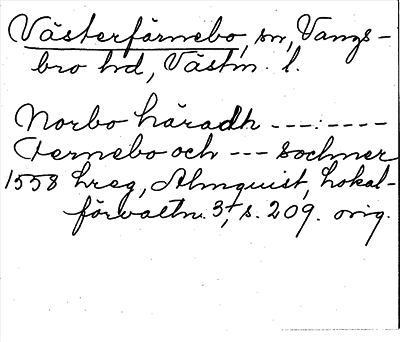 Västerfärnebo, sn, Vangs-
bro hd, Västm. l.
Norbo häradh ---:----
Fernebo och --- sochner
1558 hreg, Almquist, Lokal-
förvaltn. 3, s. 209. orig.